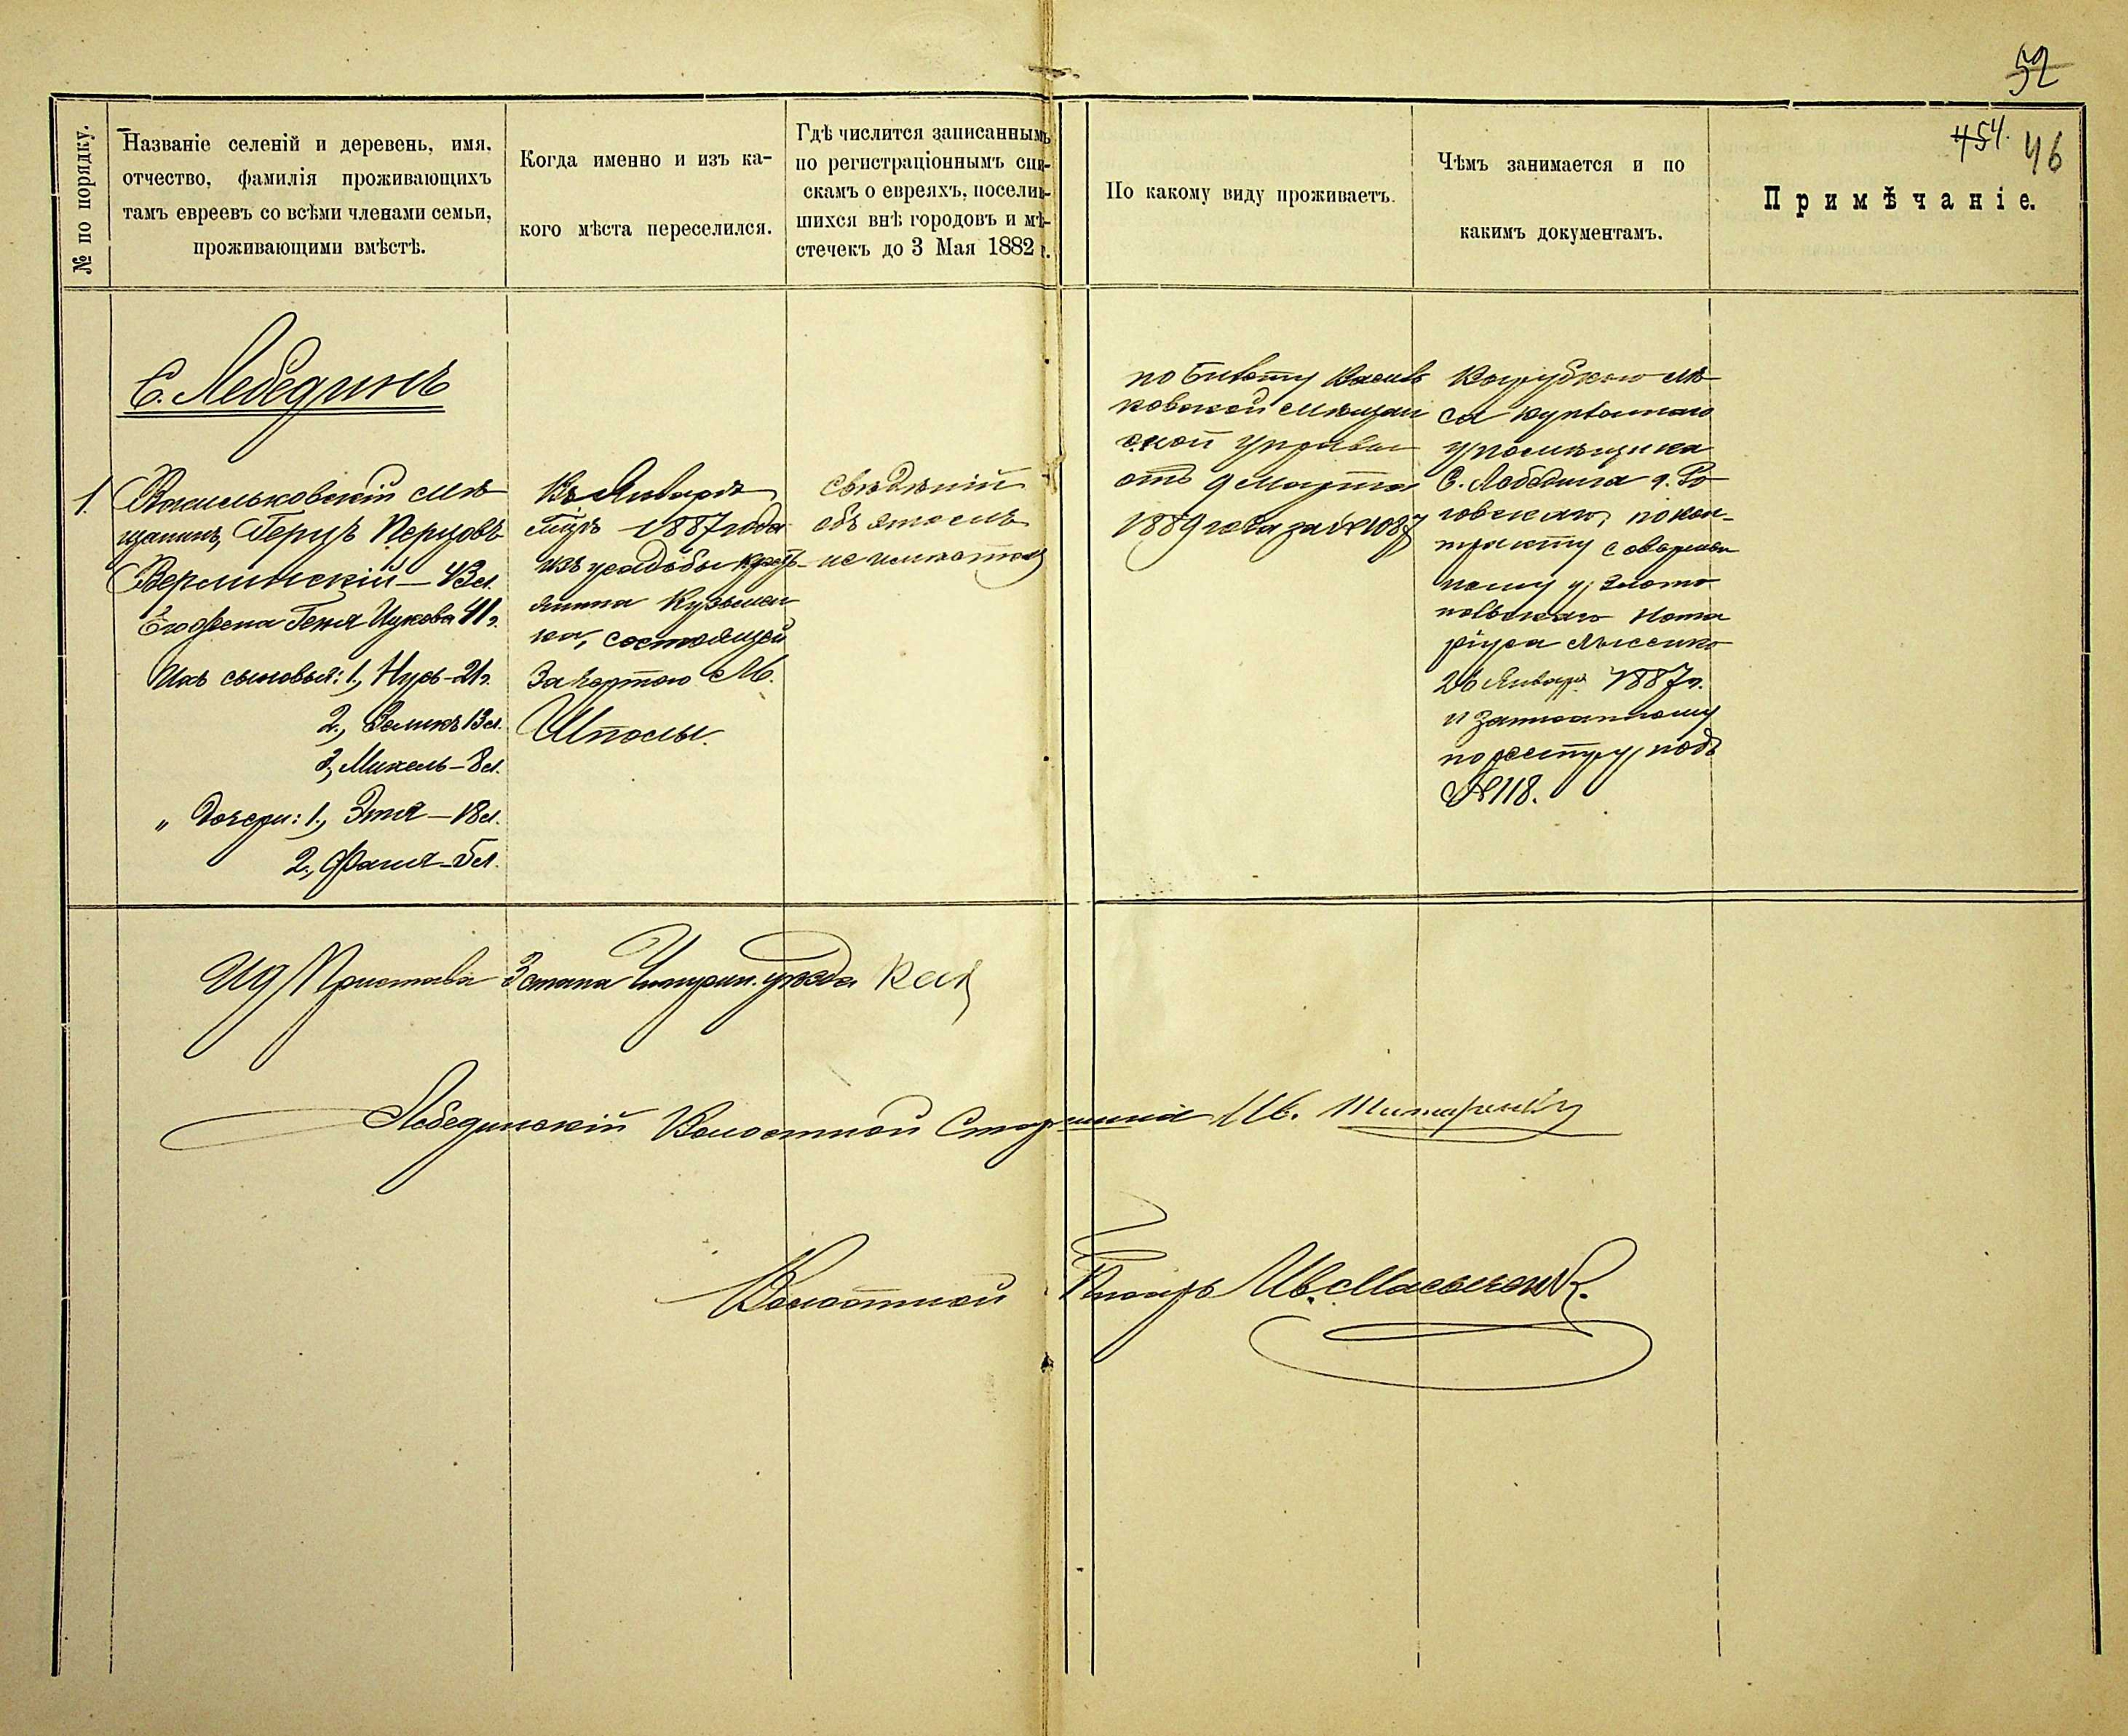 52
454.
46
№ по порядку.
Названіе селеній и деревень, имя,
отчество, фамилія проживающихъ
тамъ евреевъ со всѣми членами семьи,
проживающими вмѣстѣ.
Когда именно и изъ ка-
кого мѣста переселился.
Гдѣ числится записаннымъ
по регистраціоннымъ спи-
скамъ о евреяхъ, поселив-
шихся внѣ городовъ и мѣ-
стечекъ до 3 Мая 1882 г.
По какому виду проживаетъ.
Чѣмъ занимается и по
какимъ документамъ.
Примѣчаніе.
С. Лебединъ
1.
Васильковскій мѣ
щанинъ, Герцъ Перцовъ
Верлинскій — 43 л.
Его жена Геня Ицкова 41 г.
Ихъ сыновья: 1, Нусь - 21 г.
2, Зеликъ 13 л.
3, Михель - 8 л.
„ Дочери: 1, Этя — 18 л.
2, Фаня - 5 л.
Въ Январѣ
мѣсяцѣ 1887 года
изъ усадьбы кресть-
янина Кузьмен
ка, состоящей
за чертою М.
Шполы.
Свѣдѣній
объ этомъ
не имѣется
по билету Василь
ковской мѣщан
ской управы
отъ 9 Марта
1889 года за № 1087
Вырубкою лѣ
са купленнаго
у помѣщика
С. Лебедина г. Ро
говскаго, по кон-
тракту совершен
ному у Злато
польскаго Нота
ріуса Лысенко
26 Января 1887 г.
и записанному
по реестру подъ
№ 118.
ИД Пристава 3 стана Чигирин. уѣзда
Лебединскій Волостной Старшина Ив.
Волостной Писарь Ив.